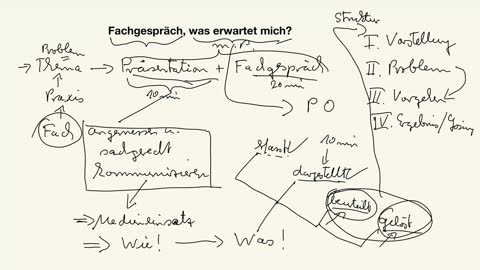 Fachgespräch, was erwartet mich?
Struktur
I. Vorstellung
II. Problem
III. Vorgehen
IV. Ergebnis/Lösung
Problem
Thema
Präsentation + Fachgespräch
10 min
20 min
Praxis
Fach
P O
angemessen u.
sachgerecht
kommunizieren
10 min
dargestellt
beurteilt
gelöst
Medieneinsatz
Wie!
Was!